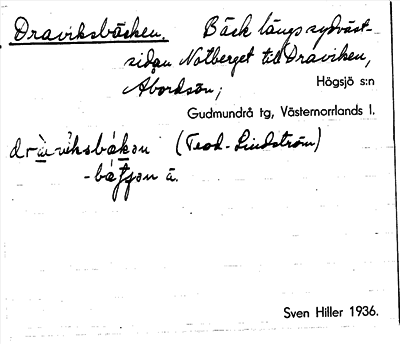 Draviksbäcken, Bäck längs sydväst-
sidan Notberget till Draviken,
Abordsön; Högsjö s:n
Gudmundrå tg, Västernorrlands l.
(Teod. Lindström)
ä.
Sven Hiller 1936.